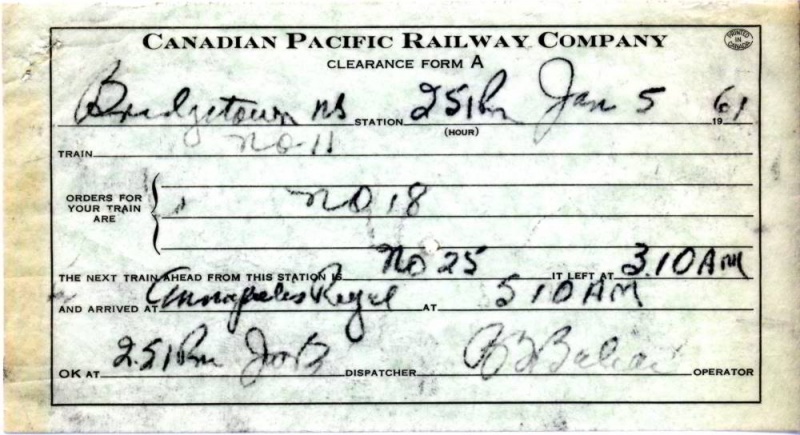 CANADIAN PACIFIC RAILWAY COMPANY
PRINTED IN CANADA
CLEARANCE FORM A
Bridgetown NS STATION 2 51 Pm Jan 5 1961
(HOUR)
TRAIN No 11
ORDERS FOR YOUR TRAIN ARE No 18
THE NEXT TRAIN AHEAD FROM THIS STATION IS No 25 IT LEFT AT 3.10 AM
AND ARRIVED AT Annapolis Royal AT 5 10 AM
OK AT 2.51 Pm DISPATCHER OPERATOR